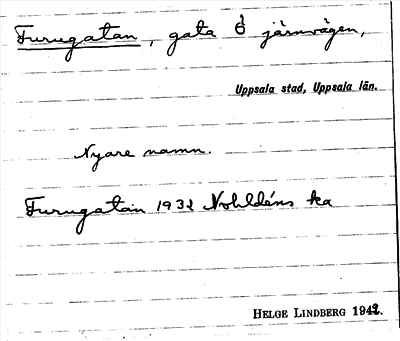 Furugatan, gata Ö järnvägen,
Uppsala stad, Uppsala län.
Nyare namn.
Furugatan 1932 Nohldéns ka
HELGE LINDBERG 1942.